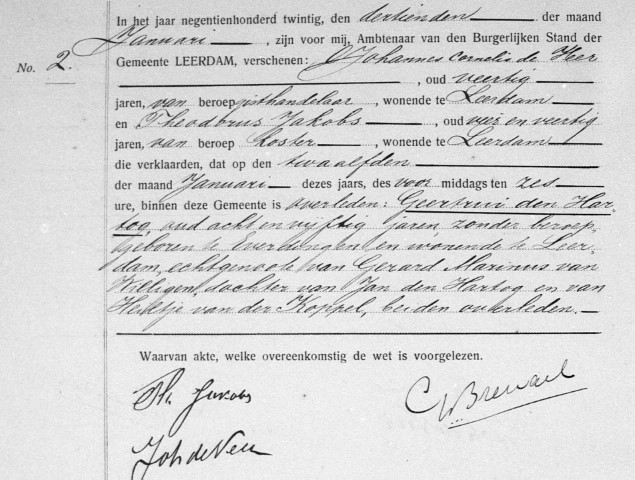 In het jaar negentienhonderd twintig, den dertienden der maand
Januari, zijn voor mij, Ambtenaar van den Burgerlijken Stand der
No. 2.
Gemeente LEERDAM, verschenen: Johannes Cornelis de Heer
, oud veertig
jaren, van beroep gisthandelaar, wonende te Leerdam
en Theodorus Jakobs, oud vier en veertig
jaren, van beroep koster, wonende te Leerdam
die verklaarden, dat op den twaalfden
der maand Januari dezes jaars, des voor middags ten zes
ure, binnen deze Gemeente is overleden: Geertrui den Har-
tog, oud acht en vijftig jaren, zonder beroep,
geboren te Everdingen en wonende te Leer-
dam, echtgenoote van Gerard Marinus van
Willigen, dochter van Jan den Hartog en van
Heiltje van der Koppel, beiden overleden.
Waarvan akte, welke overeenkomstig de wet is voorgelezen.
Th. Jakobs
Joh de Heer